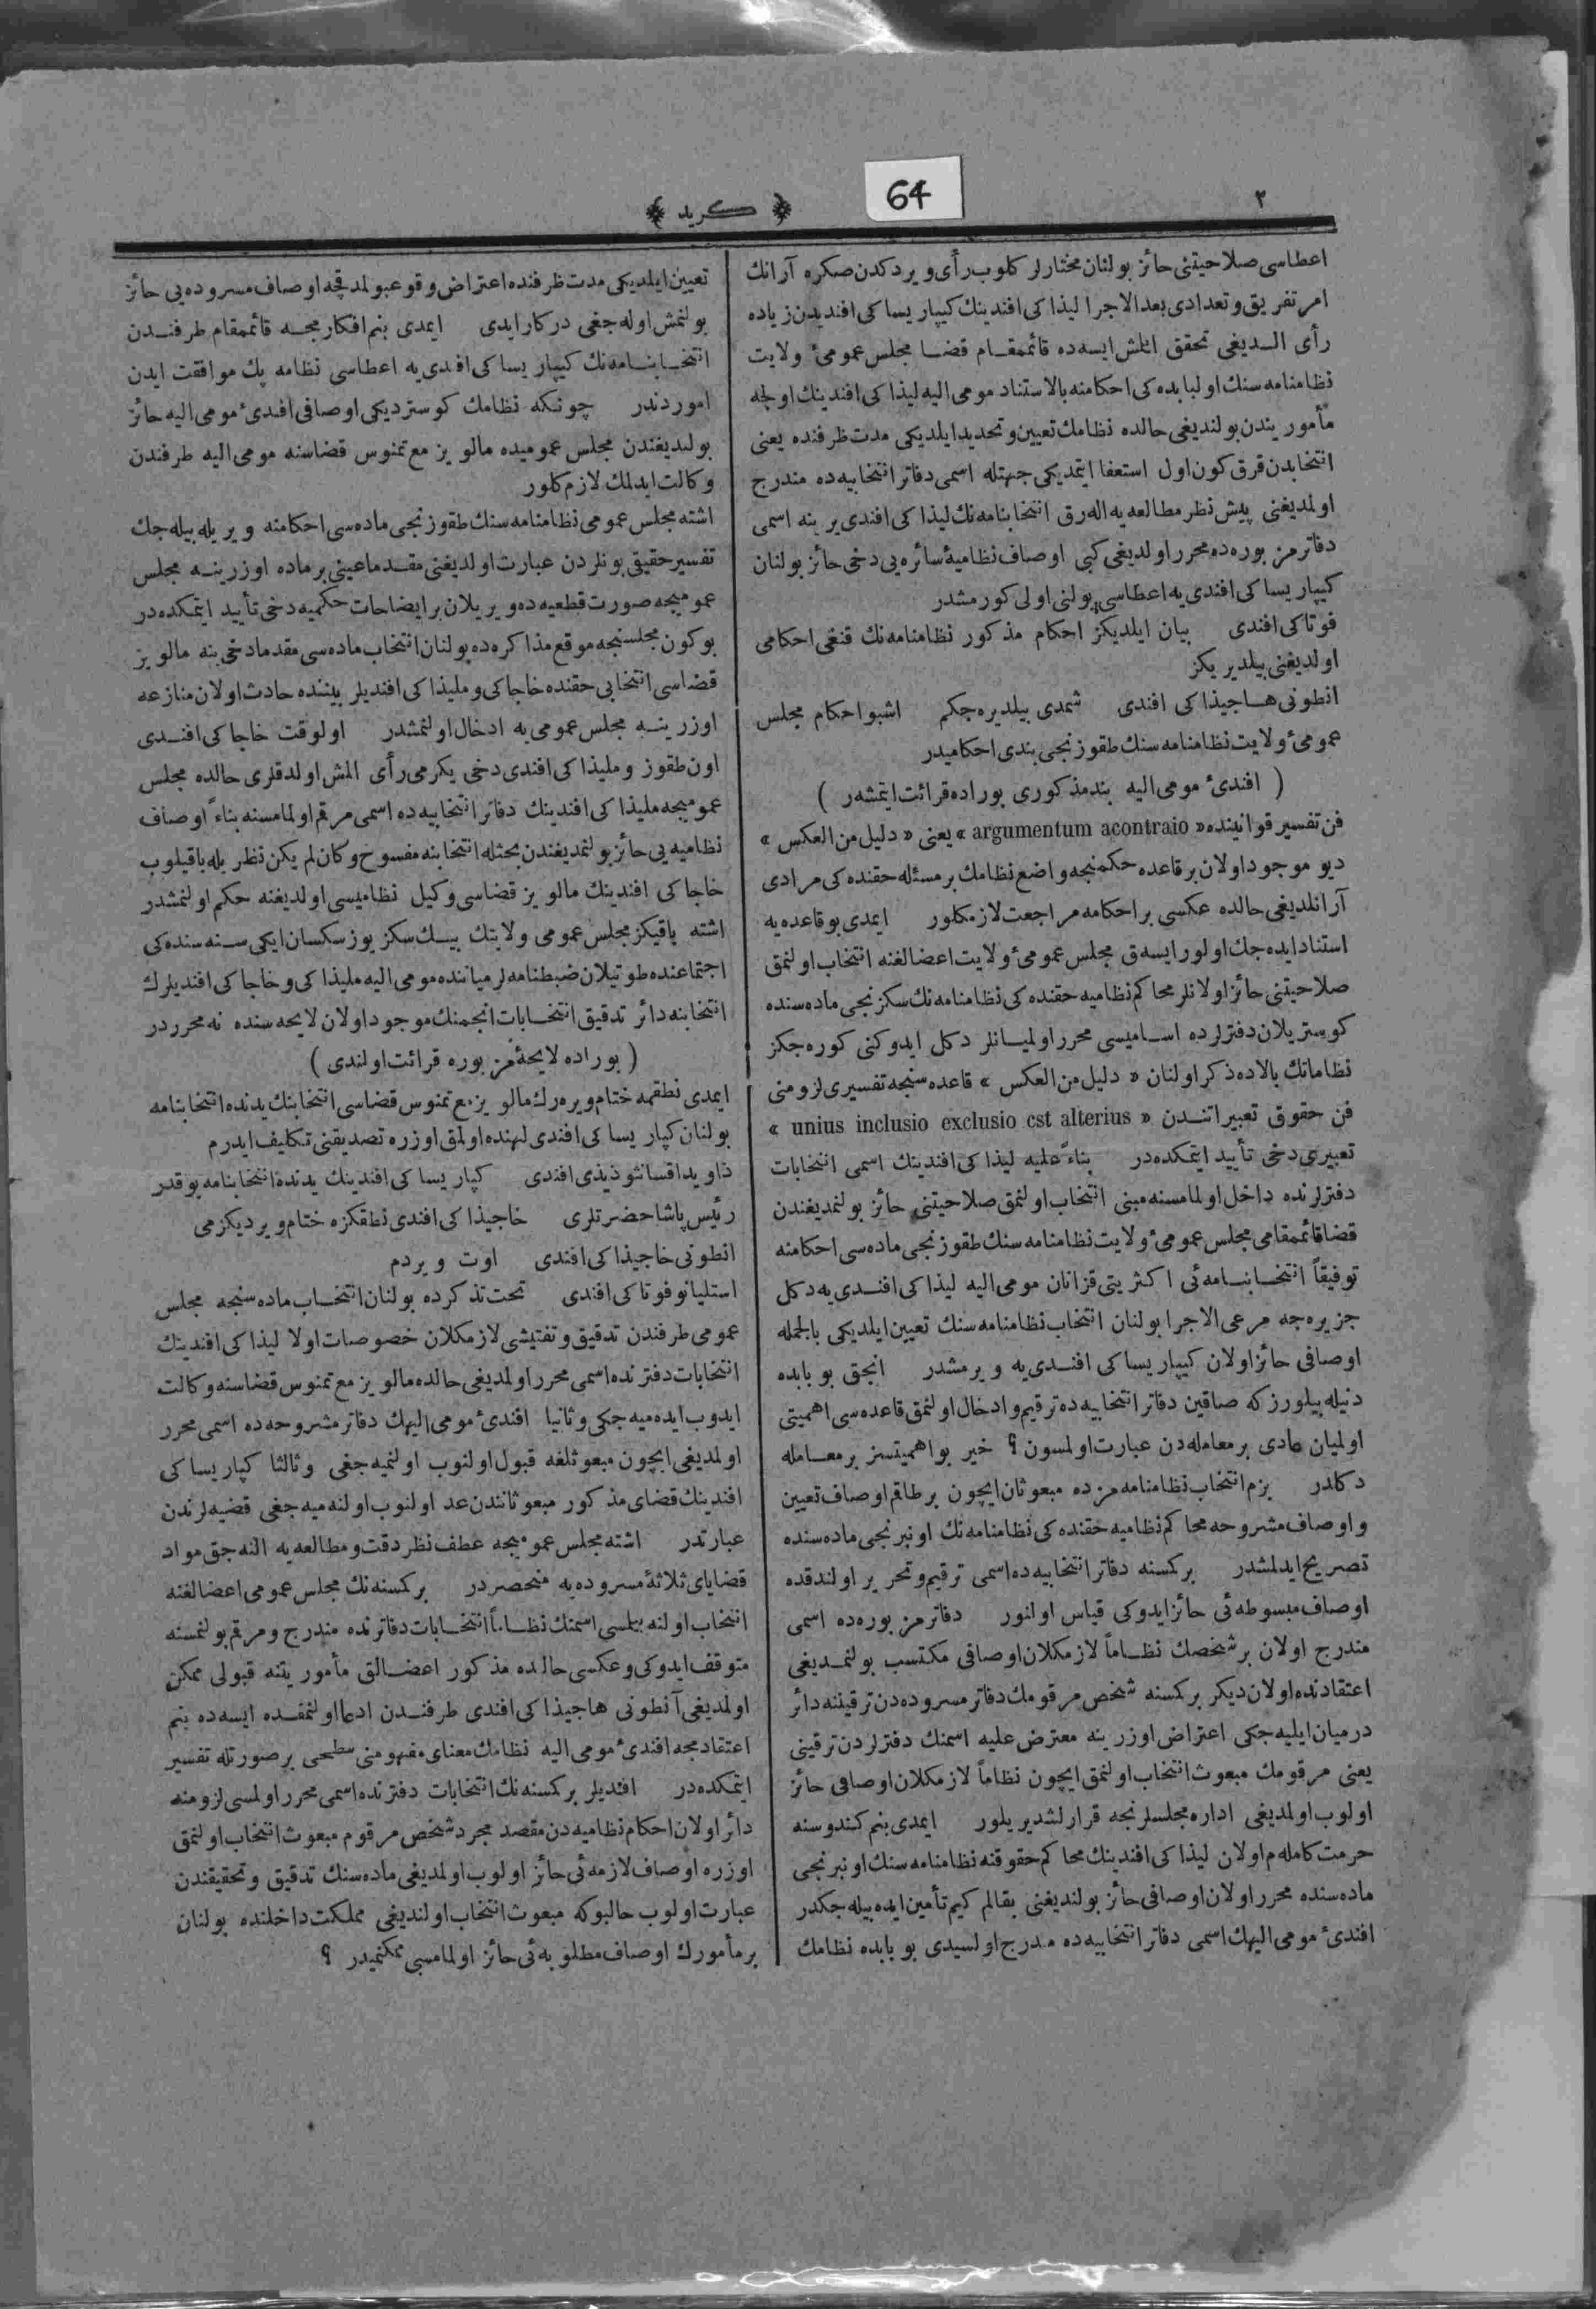 ٢
64
﴿ كريد ﴾
اعطاسى صلاحيتنى حائز بولنان مختارلر كلوب رأى ويردكدن صكره آرانك
امر تفريق و تعدادى بعد الاجرا ليذا كى افندينك كيپاريسا كى افنديدن زياده
رأى الديغى تحقق ايتمش ايسه ده قائممقام قضا مجلس عمومئ ولايت
نظامنامه سنك اولبابده كى احكامنه بالاستناد مومى اليه ليذا كى افندينك اولجه
مأموريندن بولنديغى حالده نظامك تعيين و تحديد ايلديكى مدت ظرفنده يعنى
انتخابدن قرق كون اول استعفا ايتمديكى جهتله اسمى دفاتر انتخابيه ده مندرج
اولمديغنى پيش نظر مطالعه يه اله رق انتخابنامه نك ليذا كى افندى يرينه اسمى
دفاترمز بوره ده محرر اولديغى كبى اوصاف نظاميهٔ سائره يى دخى حائز بولنان
كيپاريسا كى افندى يه اعطاسى بولنى اولى كورمشدر
فوتاكى افندى بيان ايلديكز احكام مذكور نظامنامه نك قنغى احكامى
اولديغنى بيلديريكز
انطونى هاجيذاكى افندى شمدى بيلديره جكم اشبو احكام مجلس
عمومئ ولايت نظامنامه سنك طقوزنجى بندى احكاميدر
( افندئ مومى اليه بند مذكورى بوراده قرائت ايتمشدر )
فن تفسير قوانينده « argumentum acontraio » يعنى « دليل من العكس »
ديو موجود اولان بر قاعده حكمنجه واضع نظامك بر مسئله حقنده كى مرادى
آرانلديغى حالده عكسى بر احكامه مراجعت لازمكلور ايمدى بو قاعده يه
استناد ايده جك اولور ايسه ق مجلس عمومئ ولايت اعضالغنه انتخاب اولنمق
صلاحيتنى حائز اولانلر محاكم نظاميه حقنده كى نظامنامه نك سكزنجى ماده سنده
كوستريلان دفترلرده اساميسى محرر اولميانلر دكل ايدوكنى كوره جكز
نظاماتك بالاده ذكر اولنان « دليل من العكس » قاعده سنجه تفسيرى لزومنى
فن حقوق تعبيراتندن « unius inclusio exclusio cst alterius »
تعبيرى دخى تأييد ايتمكده در بناءً عليه ليذا كى افندينك اسمى انتخابات
دفترلرنده داخل اولمامسنه مبنى انتخاب اولنمق صلاحيتنى حائز بولنمديغندن
قضا قائممقامى مجلس عمومئ ولايت نظامنامه سنك طقوزنجى ماده سى احكامنه
توفيقاً انتخابنامه ئى اكثريتى قزانان مومى اليه ليذا كى افندى يه دكل
جزيره جه مرعى الاجرا بولنان انتخاب نظامنامه سنك تعيين ايلديكى بالجمله
اوصافى حائز اولان كيپاريسا كى افندى يه ويرمشدر انجق بو بابده
دنيله بيلورزكه صاقين دفاتر انتخابيه ده ترقيم و ادخال اولنمق قاعده سى اهميتى
اولميان عادى بر معامله دن عبارت اولمسون ؟ خير بو اهميتسز بر معامله
دكلدر بزم انتخاب نظامنامه مزده مبعوثان ايچون بر طاقم اوصاف تعيين
و اوصاف مشروحه محاكم نظاميه حقنده كى نظامنامه نك اون برنجى ماده سنده
تصريح ايدلمشدر بر كمسنه دفاتر انتخابيه ده اسمى ترقيم و تحرير اولندقده
اوصاف مبسوطه ئى حائز ايدوكى قياس اولنور دفاترمز بوره ده اسمى
مندرج اولان بر شخصك نظاماً لازمكلان اوصافى مكتسب بولنمديغى
اعتقادنده اولان ديكر بر كمسنه شخص مرقومك دفاتر مسروده دن ترقيننه دائر
درميان ايليه جكى اعتراض اوزرينه معترض عليه اسمنك دفترلردن ترقينى
يعنى مرقومك مبعوث انتخاب اولنمق ايچون نظاماً لازمكلان اوصافى حائز
اولوب اولمديغى اداره مجلسلرنجه قرارلشديريلور ايمدى بنم كندوسنه
حرمت كامله م اولان ليذا كى افندينك محاكم حقوقنه نظامنامه سنك اون برنجى
ماده سنده محرر اولان اوصافى حائز بولنديغنى بقالم كيم تأمين ايده بيله جكدر
افندئ مومى اليهك اسمى دفاتر انتخابيه ده مدرج اولسيدى بو بابده نظامك
تعيين ايلديكى مدت ظرفنده اعتراض وقوعبولمدقچه اوصاف مسروده يى حائز
بولنمش اوله جغى دركار ايدى ايمدى بنم افكارمجه قائممقام طرفندن
انتخابنامه نك كيپاريسا كى افندى يه اعطاسى نظامه پك موافقت ايدن
اموردندر چونكه نظامك كوسترديكى اوصافى افندئ مومى اليه حائز
بولنديغندن مجلس عموميده مالويز مع تمنوس قضاسنه مومى اليه طرفندن
وكالت ايدلمك لازم كلور
اشته مجلس عمومى نظامنامه سنك طقوزنجى ماده سى احكامنه ويريله بيله جك
تفسير حقيقى بونلردن عبارت اولديغنى مقدما عينى بر ماده اوزرينه مجلس
عموميجه صورت قطعيه ده ويريلان بر ايضاحات حكميه دخى تأييد ايتمكده در
بو كون مجلسنجه موقع مذاكره ده بولنان انتخاب ماده سى مقدما دخى ينه مالويز
قضاسى انتخابى حقنده خاجاكى و مليذا كى افنديلر بيننده حادث اولان منازعه
اوزرينه مجلس عمومى يه ادخال اولنمشدر اولوقت خاجاكى افندى
اون طقوز و مليذا كى افندى دخى يكرمى رأى المش اولدقلرى حالده مجلس
عموميجه مليذا كى افندينك دفاتر انتخابيه ده اسمى مرقم اولمامسنه بناءً اوصاف
نظاميه يى حائز بولنمديغندن بحثله انتخابنه مفسوخ و كان لم يكن نظريله باقيلوب
خاجاكى افندينك مالويز قضاسى وكيل نظاميسى اولديغنه حكم اولنمشدر
اشته باقيكز مجلس عمومى ولايتك بيك سكز يوز سكسان ايكى سنه سنده كى
اجتماعنده طوتيلان ضبطنامه لر ميانده مومى اليه مليذا كى و خاجاكى افنديلرك
انتخابنه دائر تدقيق انتخابات انجمنك موجود اولان لايحه سنده نه محرردر
( بوراده لايحهٔ مز بوره قرائت اولندى )
ايمدى نطقمه ختام ويره رك مالويز مع تمنوس قضاسى انتخابنك يدنده انتخابنامه
بولنان كپاريسا كى افندى لهنده اولمق اوزره تصديقنى تكليف ايدرم
ذاويد اقسانثوذيذى افندى كپاريسا كى افندينك يدنده انتخابنامه يوقدر
رئيس پاشا حضرتلرى خاجيذا كى افندى نطقكزه ختام ويرديكزمى
انطونى خاجيذا كى افندى اوت ويردم
استليانو فوتاكى افندى تحت تذكرده بولنان انتخاب ماده سنجه مجلس
عمومى طرفندن تدقيق و تفتيشى لازمكلان خصوصات اولا ليذا كى افندينك
انتخابات دفترنده اسمى محرر اولمديغى حالده مالويز مع تمنوس قضاسنه وكالت
ايدوب ايده ميه جكى و ثانيا افندئ مومى اليهك دفاتر مشروحه ده اسمى محرر
اولمديغى ايچون مبعوثلغه قبول اولنوب اولنميه جغى و ثالثا كپاريسا كى
افندينك قضاى مذكور مبعوثانندن عد اولنوب اولنه ميه جغى قضيه لرندن
عبارتدر اشته مجلس عموميجه عطف نظر دقت و مطالعه يه النه جق مواد
قضاياى ثلاثهٔ مسروده يه منحصردر بر كمسنه نك مجلس عمومى اعضالغنه
انتخاب اولنه بيلمسى اسمنك نظاماً انتخابات دفاترنده مندرج و مرقم بولنمسنه
متوقف ايدوكى و عكسى حالده مذكور اعضالق مأموريتنه قبولى ممكن
اولمديغى آنطونى هاجيذا كى افندى طرفندن ادعا اولنمقده ايسه ده بنم
اعتقادمجه افندئ مومى اليه نظامك معناى مفهومنى سطحى بر صورتله تفسير
ايتمكده در افنديلر بر كمسنه نك انتخابات دفترنده اسمى محرر اولمسى لزومنه
دائر اولان احكام نظاميه دن مقصد مجرد شخص مرقوم مبعوث انتخاب اولنمق
اوزره اوصاف لازمه ئى حائز اولوب اولمديغى ماده سنك تدقيق و تحقيقندن
عبارت اولوب حالبوكه مبعوث انتخاب اولنديغى مملكت داخلنده بولنان
بر مأمورك اوصاف مطلوبه ئى حائز اولمامسى ممكنميدر ؟